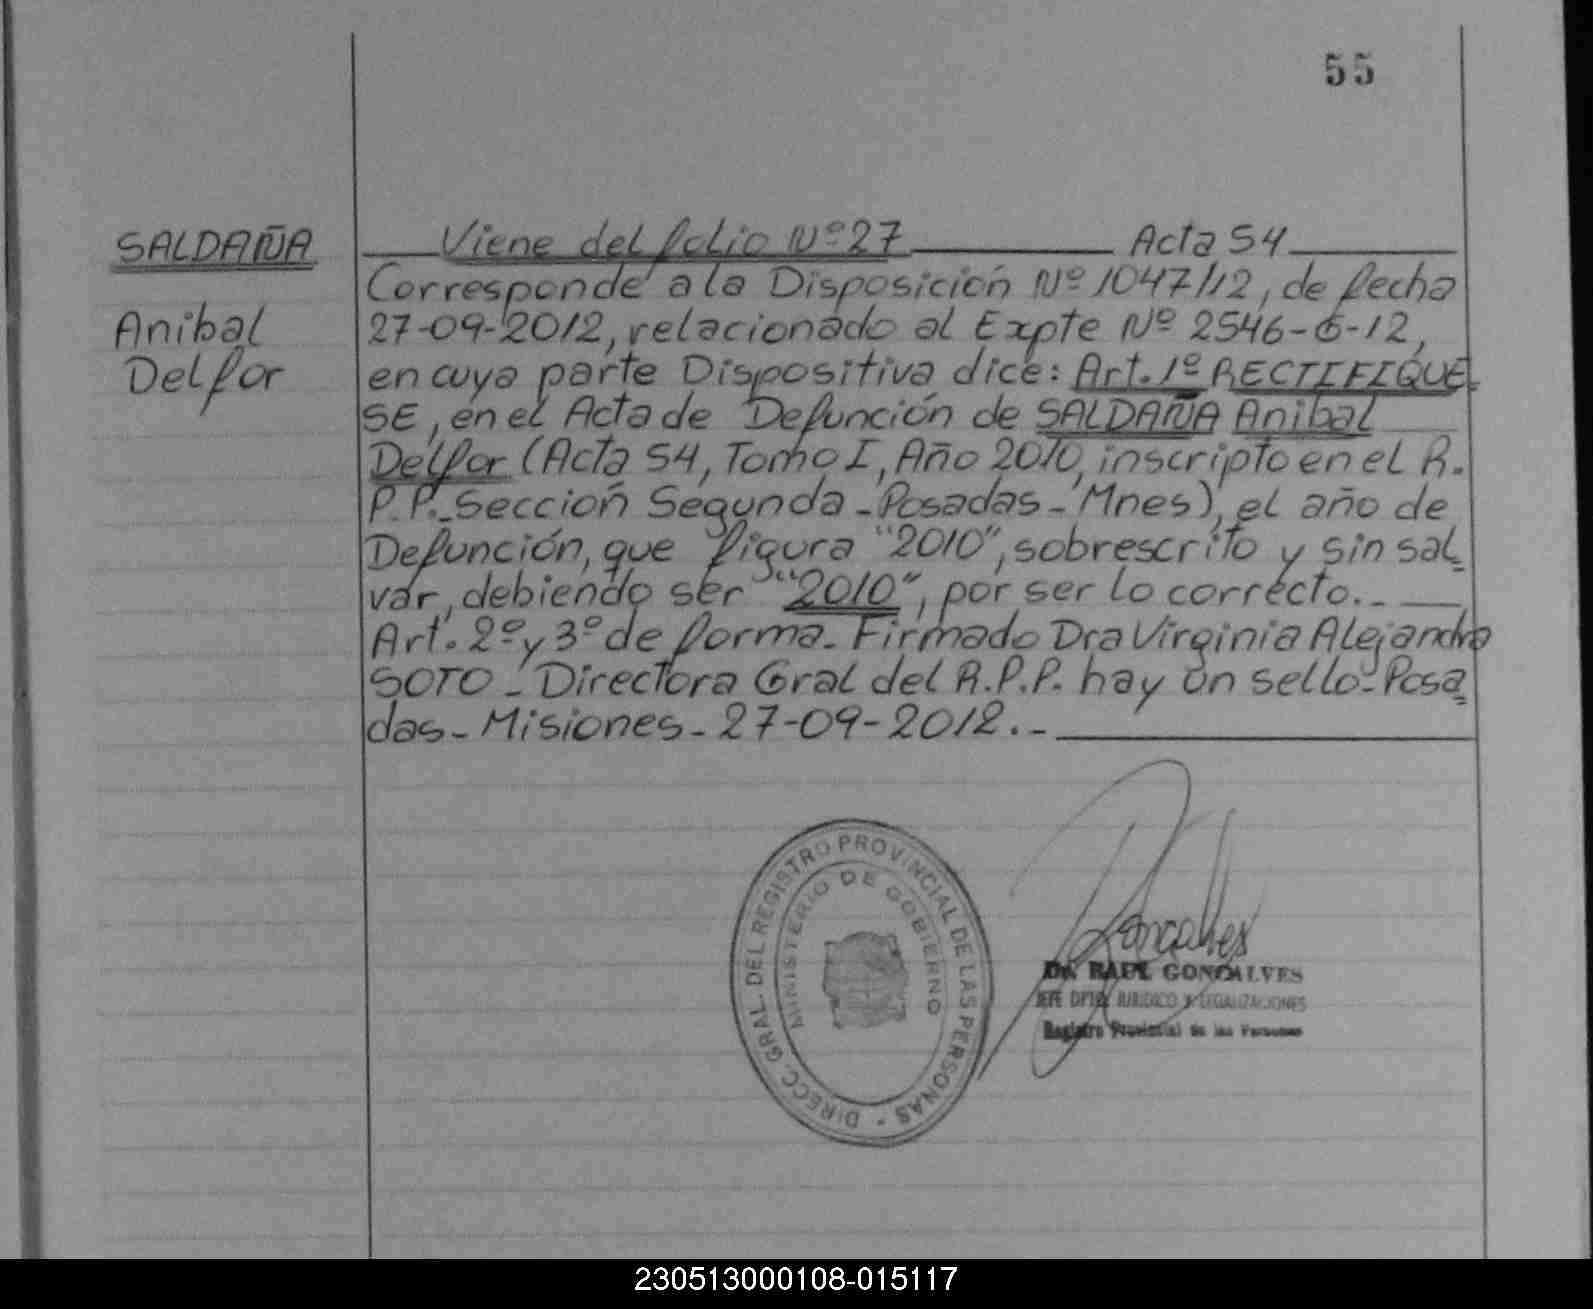 55
SALDAÑA
Anibal
Delfor
Viene del folio Nº 27 Acta 54
Corresponde a la Disposición Nº 1047/12, de fecha
27-09-2012, relacionado al Expte Nº 2546-G-12,
en cuya parte Dispositiva dice: Art. 1º RECTIFIQUE-
SE, en el Acta de Defunción de SALDAÑA Anibal
Delfor (Acta 54, Tomo I, Año 2010, inscripto en el R.
P.P.-Sección Segunda-Posadas-Mnes), el año de
Defunción, que figura "2010", sobrescrito y sin sal=
var, debiendo ser "2010", por ser lo correcto.-
Art. 2º y 3º de forma. Firmado Dra Virginia Alejandra
SOTO - Directora Gral del R.P.P. hay un sello-Posa=
das-Misiones-27-09-2012.-
DIRECC. GRAL. DEL REGISTRO PROVINCIAL DE LAS PERSONAS -
MINISTERIO DE GOBIERNO
Goncalves
Dr. RAUL GONCALVES
JEFE DPTO. JURIDICO Y LEGALIZACIONES
Registro Provincial de las Personas
230513000108-015117